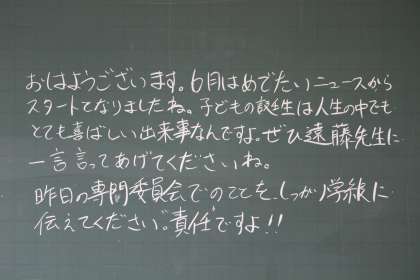 おはようございます。6月はめでたいニュースから
スタートとなりましたね。子どもの誕生は人生の中でも
とても喜ばしい出来事なんですよ。ぜひ遠藤先生に
一言言ってあげてくださいね。
昨日の専門委員会でのことを、しっかり学級に
伝えてください。責任ですよ!!